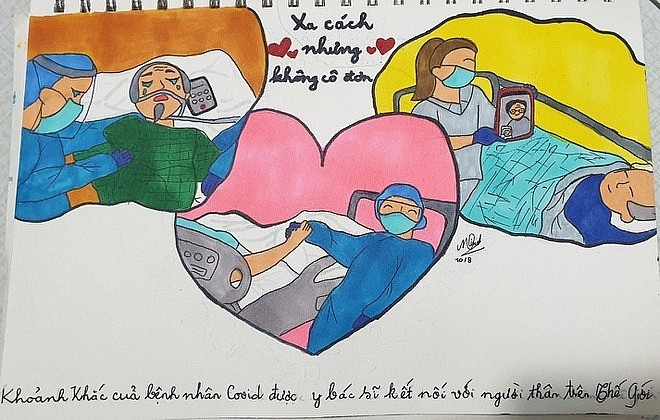 Xa cách
nhưng
không cô đơn
2018
Khoảnh Khắc cuả bệnh nhân Covid được y bác sĩ kết nối với người thân trên Thế Giới